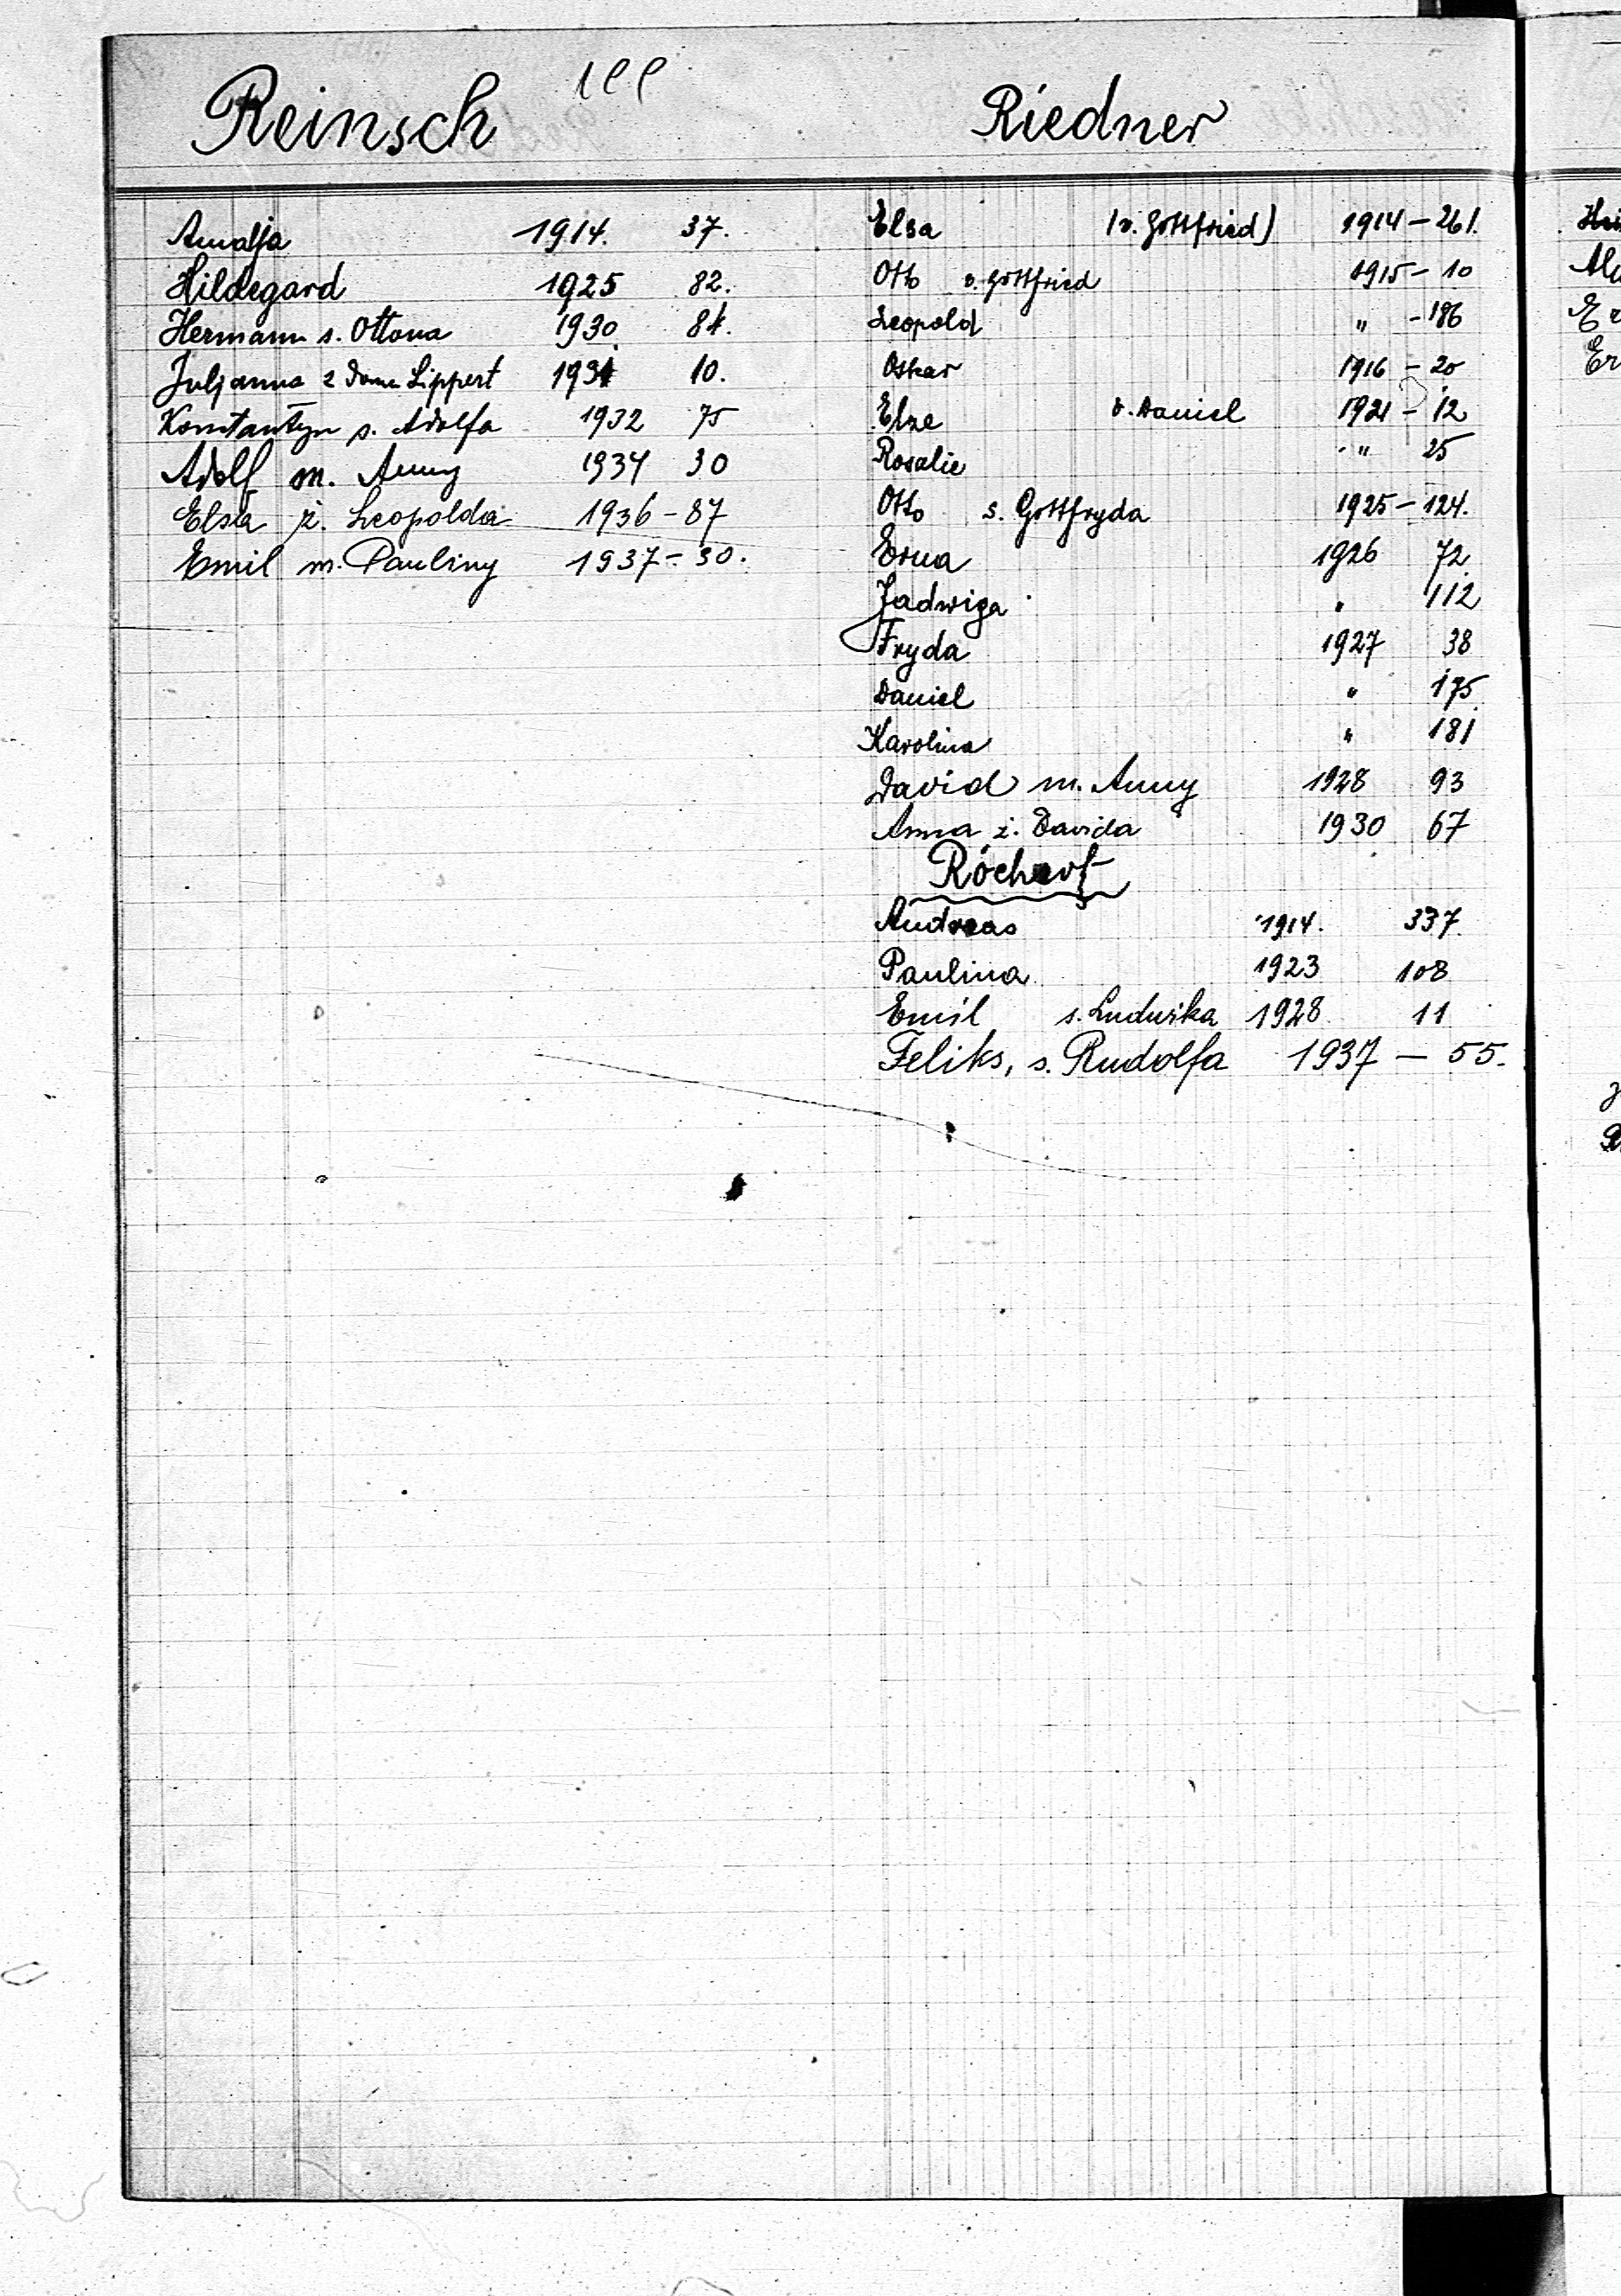 Reinsch
Amalja 1914. 37.
Hildegard 1925 82.
Hermann s. Ottona 1930 84.
Juljanna z domu Lippert 1931 10.
Konstantyn s. Adolfa 1932 75
Adolf m. Anny 1934 30
Elsa ż. Leopolda 1936 - 87
Emil m. Pauliny 1937 - 30.
Riedner
Elsa (v. Gottfried) 1914 - 261.
Otto v. Gottfried 1915 - 10
Leopold " - 186
Oskar 1916 - 20
Elze v. Daniel 1921 - 12
Rosalie " 25
Otto s. Gottfryda 1925 - 124.
Erna 1926 72
Jadwiga " 112
Fryda 1927 38
Daniel " 175
Karolina " 181
David m. Anny 1928 93
Anna ż. Davida 1930 67
Andreas 1914. 337.
Paulina 1923 108
Emil s. Ludwika 1928 11
Feliks, s. Rudolfa 1937 — 55.